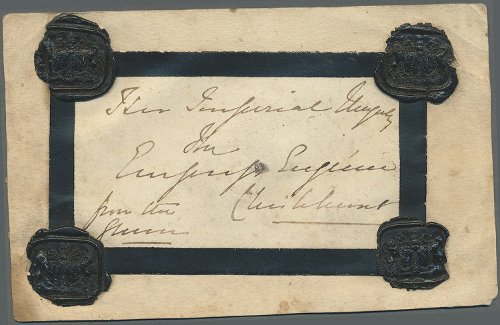 Her Imperial Majesty
The
Empress Eugénie
Chislehurst
from the
Queen